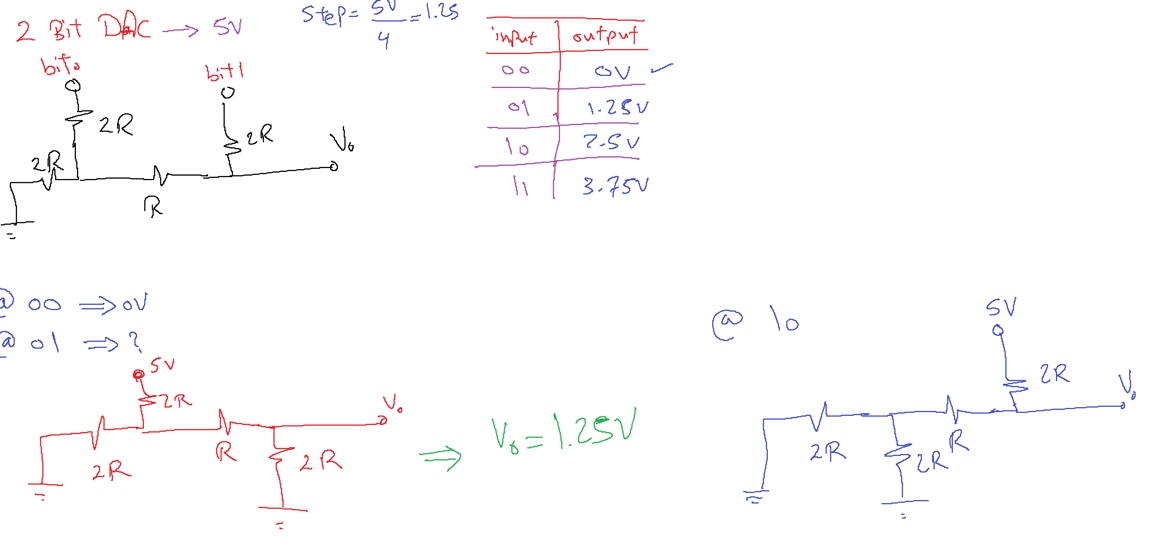 2 Bit DAC → 5V
Step = 5V/4 = 1.25
input output
00 0V ✓
01 1.25V
10 2.5V
11 3.75V
bit0
bit1
2R
2R
2R
V0
R
@ 00 ⇒ 0V
@ 01 ⇒ ?
5V
2R
V0
R
2R
2R
⇒ V0 = 1.25V
@ 10
5V
2R
V0
2R
2R
R